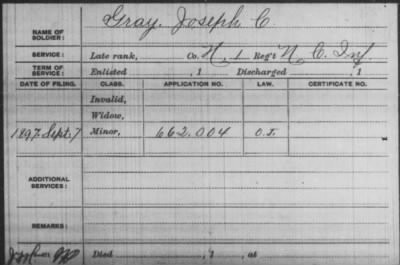 Gray, Joseph C.
NAME OF SOLDIER:
SERVICE: Late rank, Co. H, 1 Reg't N. C. Inf.
TERM OF SERVICE: Enlisted , 1 Discharged , 1
DATE OF FILING. CLASS. APPLICATION NO. LAW. CERTIFICATE NO.
Invalid,
Widow,
1897 Sept. 7 Minor, 662.004 O.J.
ADDITIONAL SERVICES:
REMARKS:
Died , 1 , at